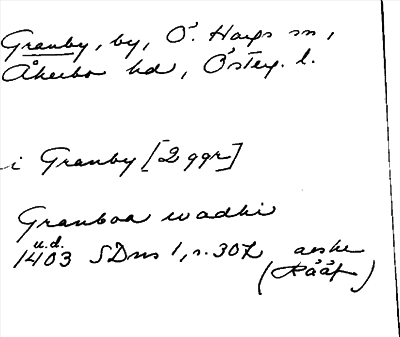 Granby, by, Ö. Hargs sn,
Åkerbo hd, Östeg. l.
i Granby [2 ggr]
Granboa wadhi
u.d.
1403 SDns 1, s. 307 aeske
(Rääf)